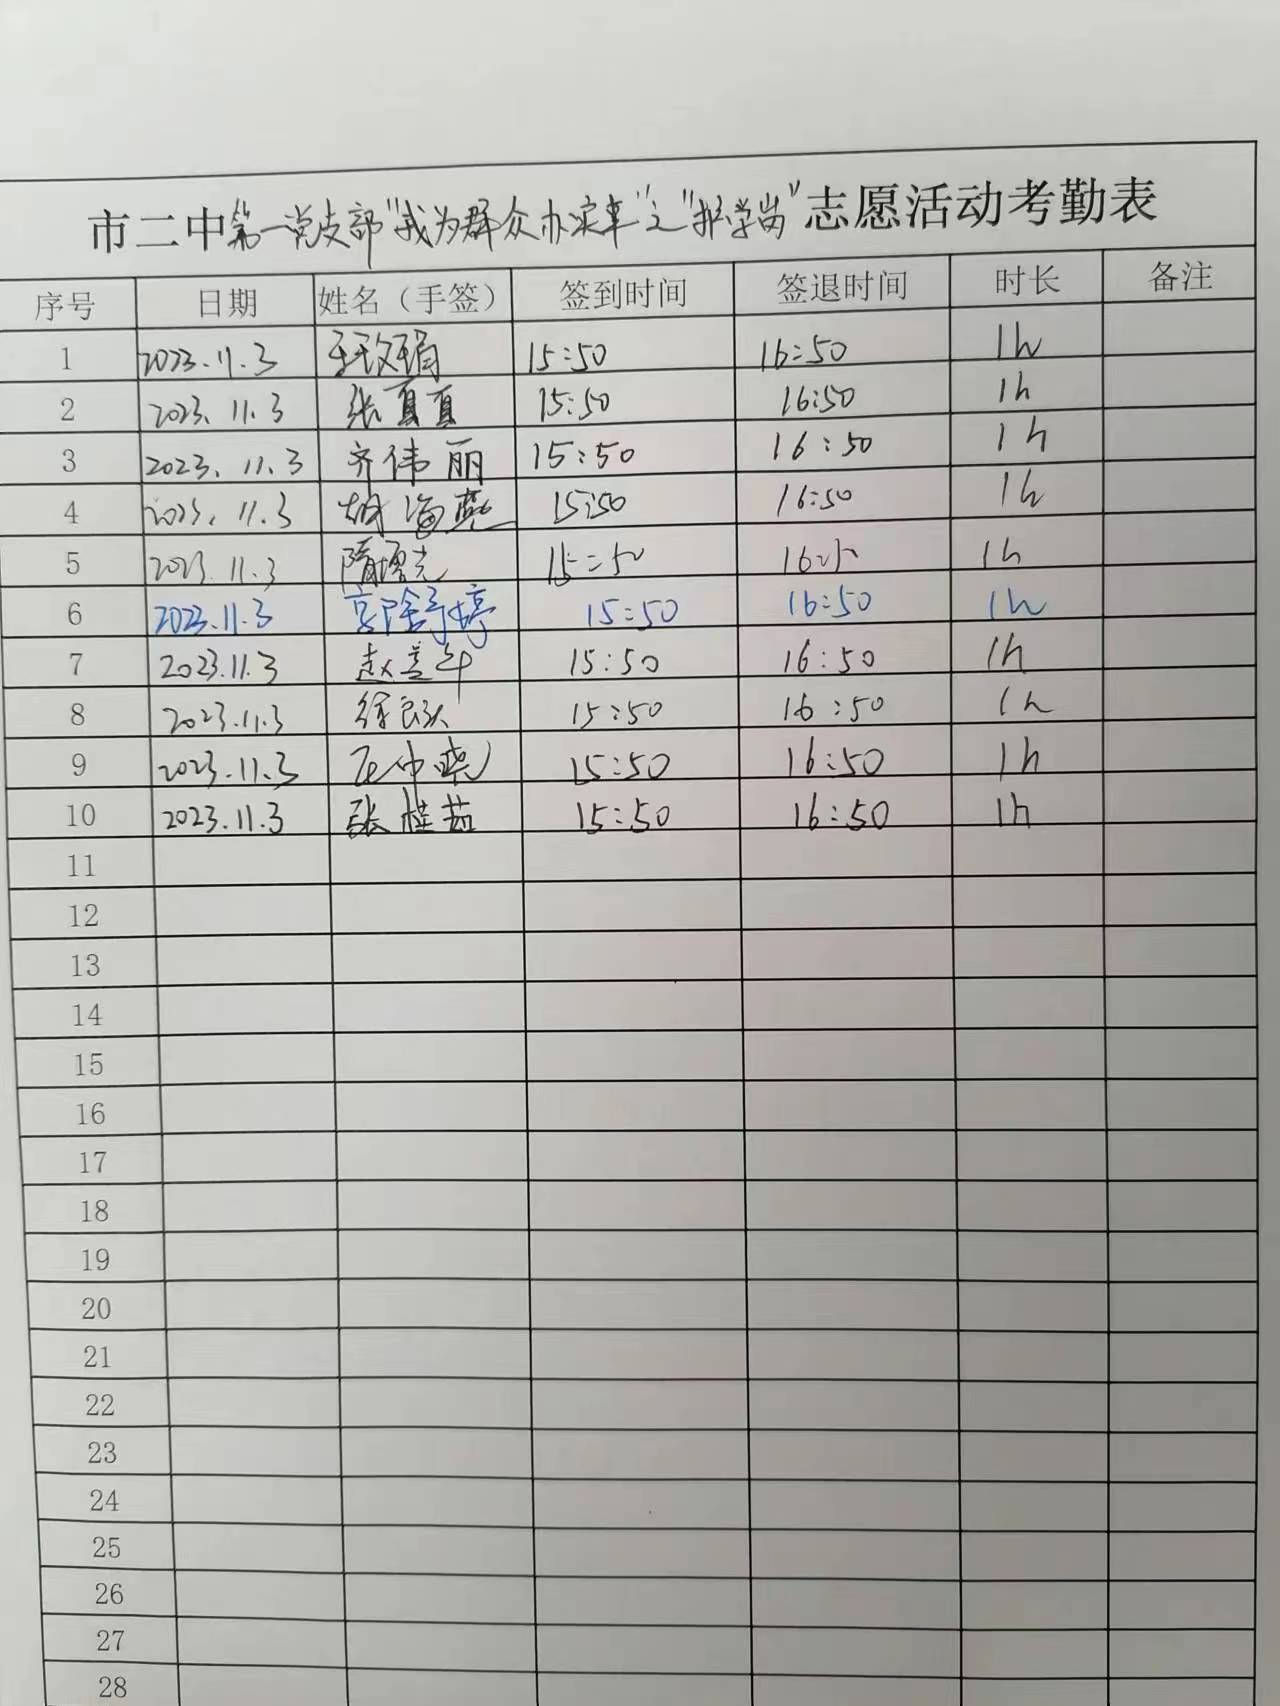 市二中第一党支部"我为群众办实事"之"护学岗"志愿活动考勤表
序号 日期 姓名（手签） 签到时间 签退时间 时长 备注
1 2023.11.3 15:50 16:50 1h
2 2023.11.3 张夏夏 15:50 16:50 1h
3 2023.11.3 齐伟丽 15:50 16:50 1h
4 2023.11.3 胡海燕 15:50 16:50 1h
5 2023.11.3 隋增光 15:50 16:50 1h
6 2023.11.3 15:50 16:50 1h
7 2023.11.3 15:50 16:50 1h
8 2023.11.3 15:50 16:50 1h
9 2023.11.3 15:50 16:50 1h
10 2023.11.3 张桂茹 15:50 16:50 1h
11
12
13
14
15
16
17
18
19
20
21
22
23
24
25
26
27
28